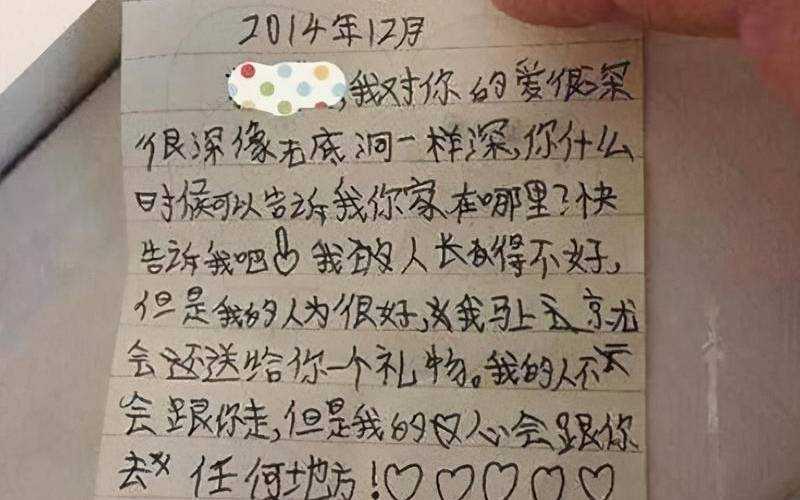 2014年12月
,我对你的爱很深
很深像无底洞一样深,你什么
时候可以告诉我你家在哪里?快
告诉我吧 我的人长得不好,
但是我的人为很好,我马上
会还送给你一个礼物。我的人不
会跟你走,但是我的心会跟你
去 任何地方!♡♡♡♡♡